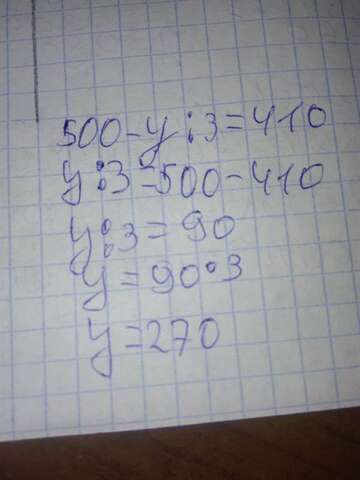 500-y:3=410
y:3=500-410
y:3=90
y=90·3
y=270